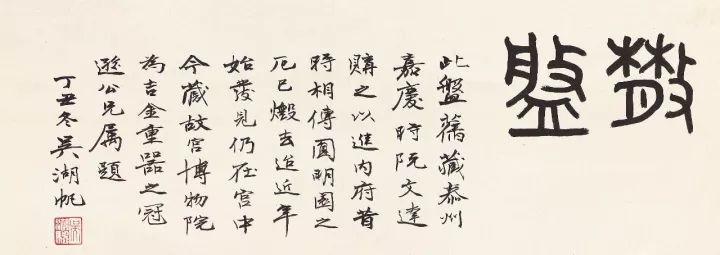 散盤
此盤舊藏泰州
嘉慶時阮文達
購之以進內府昔
時相傳圓明園之
厄已燬去迨近年
始發見仍在宮中
今藏故宮博物院
為吉金重器之冠
公兄屬題
丁丑冬吳湖帆